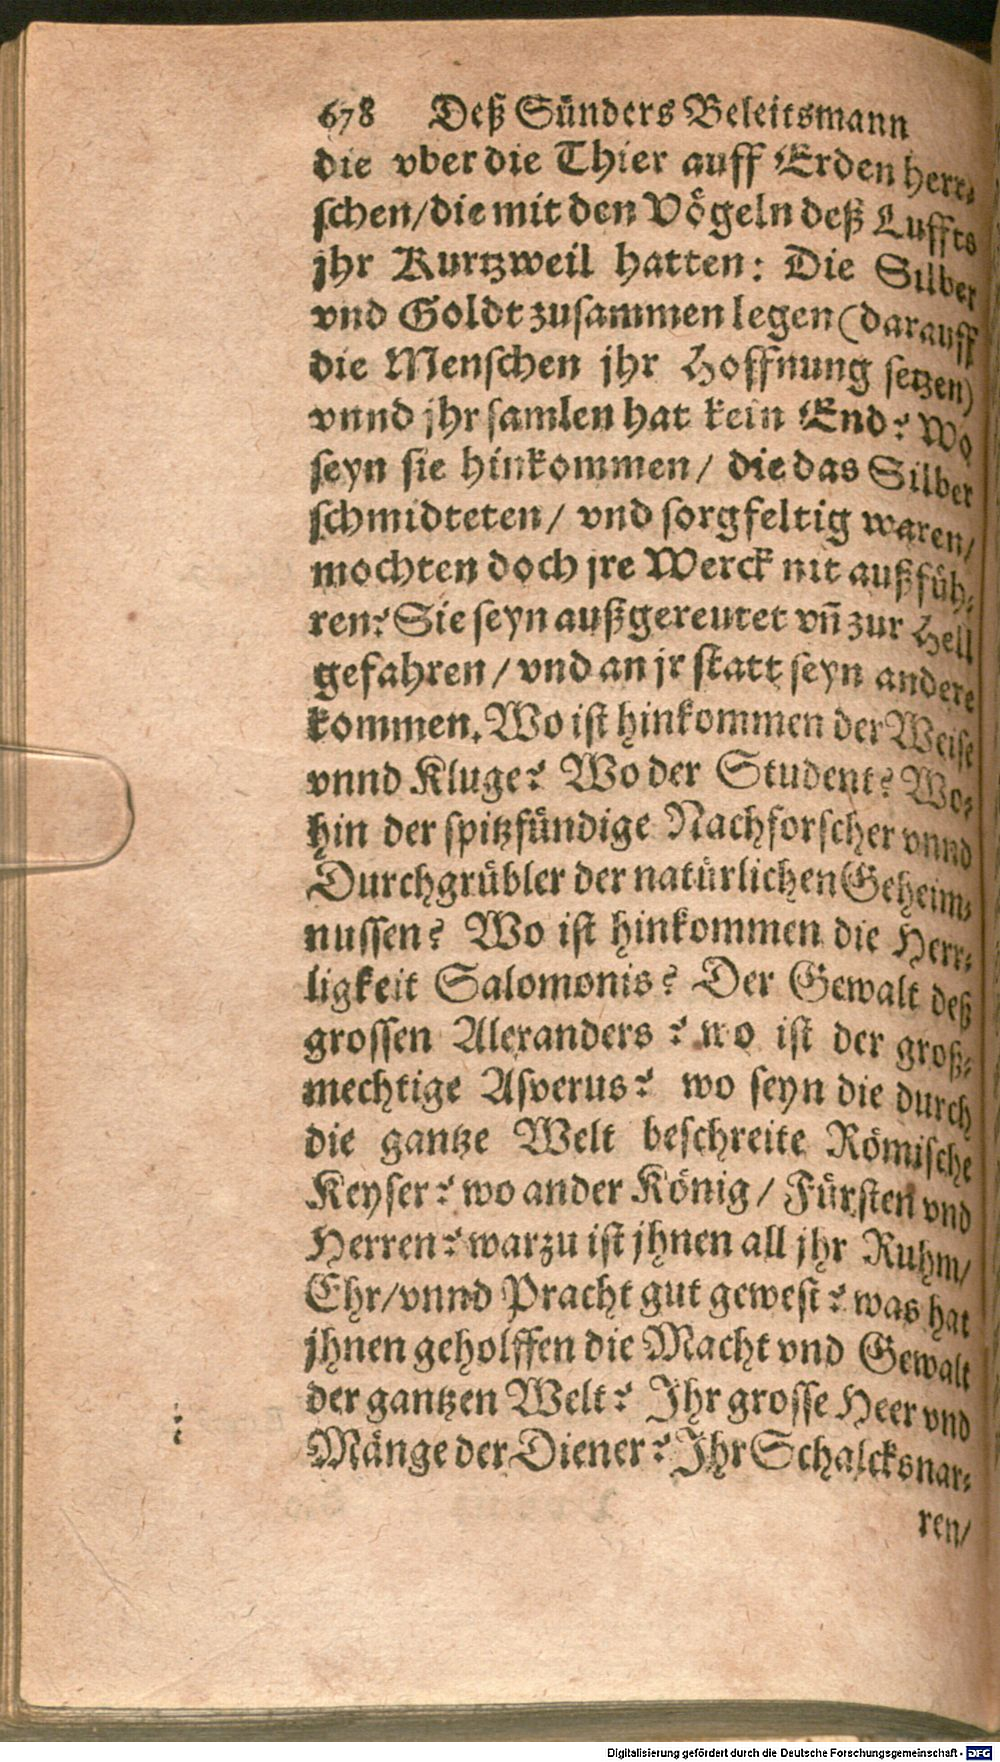 678 Deß Sünders Beleitsmann
die vber die Thier auff Erden herr⸗
schen/die mit den Vögeln deß Luffts
jhr Kurtzweil hatten: Die Silber
vnd Goldt zusammen legen (darauff
die Menschen jhr Hoffnung setzen)
vnnd jhr samlen hat kein End? Wo
seyn sie hinkommen/ die das Silber
schmidteten/ vnd sorgfeltig waren/
mochten doch jre Werck nit außfüh⸗
ren? Sie seyn außgereutet vñ zur Hell
gefahren/ vnd an jr statt seyn andere
kommen. Wo ist hinkommen der Weise
vnnd Kluge? Wo der Student? Wo⸗
hin der spitzfündige Nachforscher vnnd
Durchgrübler der natürlichen Geheim⸗
nussen? Wo ist hinkommen die Herr⸗
ligkeit Salomonis? Der Gewalt deß
grossen Alexanders? wo ist der groß⸗
mechtige Asverus? wo seyn die durch
die gantze Welt beschreite Römische
Keyser? wo ander König/ Fürsten vnd
Herren? warzu ist jhnen all jhr Ruhm/
Ehr/vnnd Pracht gut gewest? was hat
jhnen geholffen die Macht vnd Gewalt
der gantzen Welt? Ihr grosse Heer vnd
Mänge der Diener? Ihr Schalcksnar⸗
ren/
Digitalisierung gefördert durch die Deutsche Forschungsgemeinschaft - DFG